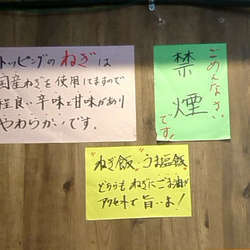 トッピングのねぎは
国産ねぎを使用してますので
程良い辛味と甘味があり
やわらかいです。
ごめんなさい
禁煙
です。
ねぎ飯、うま塩飯
どちらもねぎにごま油が
アクセントで旨いよ!